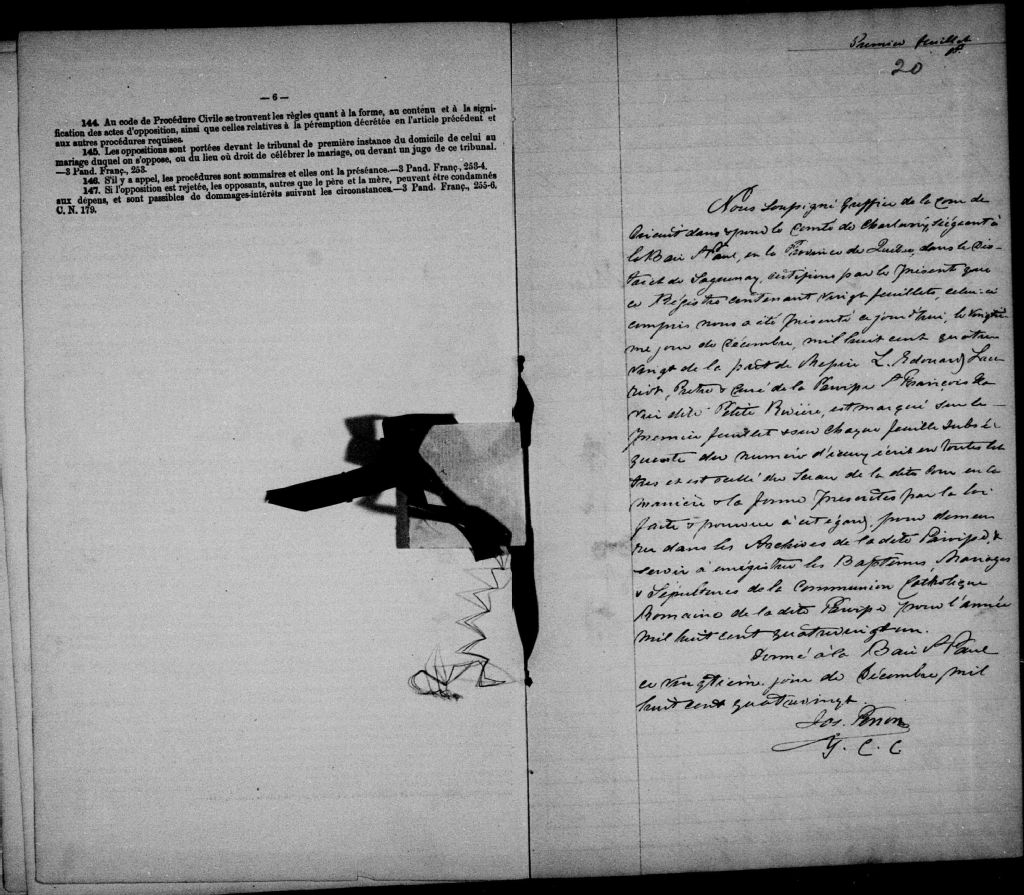 — 6 —
144. Au code de Procédure Civile se trouvent les règles quant à la forme, au contenu et à la signi-
fication des actes d'opposition, ainsi que celles relatives à la péremption décrétée en l'article précédent et
aux autres procédures requises.
145. Les oppositions sont portées devant le tribunal de première instance du domicile de celui au
mariage duquel on s'oppose, ou du lieu où droit de célébrer le mariage, ou devant un juge de ce tribunal.
—3 Pand. Franç., 253.
146. S'il y a appel, les procédures sont sommaires et elles ont la préséance.—3 Pand. Franç., 253-4.
147. Si l'opposition est rejetée, les opposants, autres que le père et la mère, peuvent être condamnés
aux dépens, et sont passibles de dommages-intérêts suivant les circonstances.—3 Pand. Franç., 255-6.
C. N. 179.
Premier feuillet
20
Nous soussigné Greffier de la cour de
Circuit dans & pour le comté de Charlevoix, siégeant à
la Baie St Paul, en la Province de Québec, dans le Dis-
trict de Saguenay, certifions par le présent que
ce Régistre contenant vingt feuillets, celui-ci
compris nous a été présenté ce jourd'hui, le vingtiè-
me jour de Décembre, mil huit cent quatre
vingt de la part de Messire L. Edouard Lau
riot, Prêtre & curé de la Paroisse St François Xa
vier dite Petite Rivière, est marqué sur le
premier feuillet & sur chaque feuille subsé
quente du numéro d'iceux, écrit en toutes let
tres et est scellé du Sceau de la dite Cour en la
manière & la forme prescrites par la loi
faite & pourvue à cet égard, pour demeu
rer dans les Archives de la dite Paroisse, &
servir à enrégistrer les Baptêmes, Mariages
& Sépultures de la Communion Catholique
Romaine de la dite Paroisse pour l'année
mil huit cent quatrevingt un.
Donné à la Baie St Paul
ce vingtième jour de Décembre mil
huit cent quatrevingt.
Jos. Perron
G. C. C